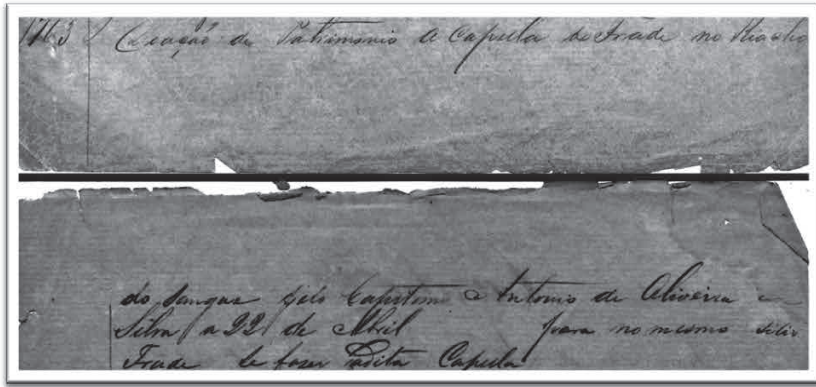 1763 Doação de Patrimonio a Capella do Frade no Riacho
do Sangue pelo Capitam Antonio de Oliveira e
Silva a 22 de Abril para no mesmo sitio
Frade se fazer a dita Capella